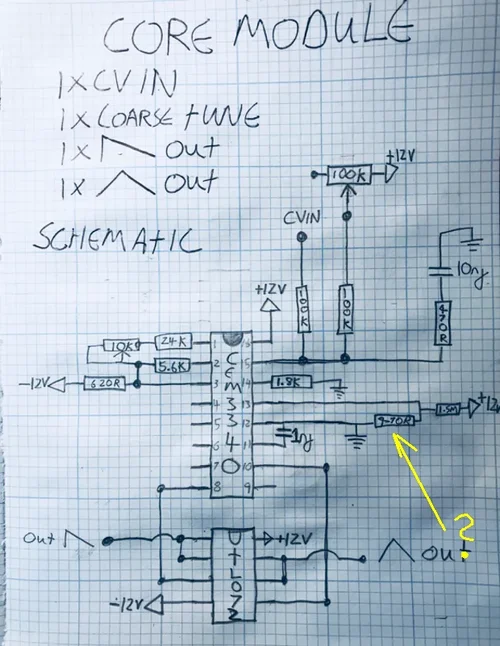 CORE MODULE
1XCV IN
1X COARSE TUNE
1X Out
1X Out
SCHEMATIC
+12V
100K
CVIN
10nf
+12V
100K
100K
470R
10K
24K
1
16
2
5.6K
15
-12V
620R
3
14
1.8K
4
13
1.5M
+12V
5
12
6
11
1nf
7
10
8
9
CEM3340
?
Out
+12V
Out
-12V
TL072